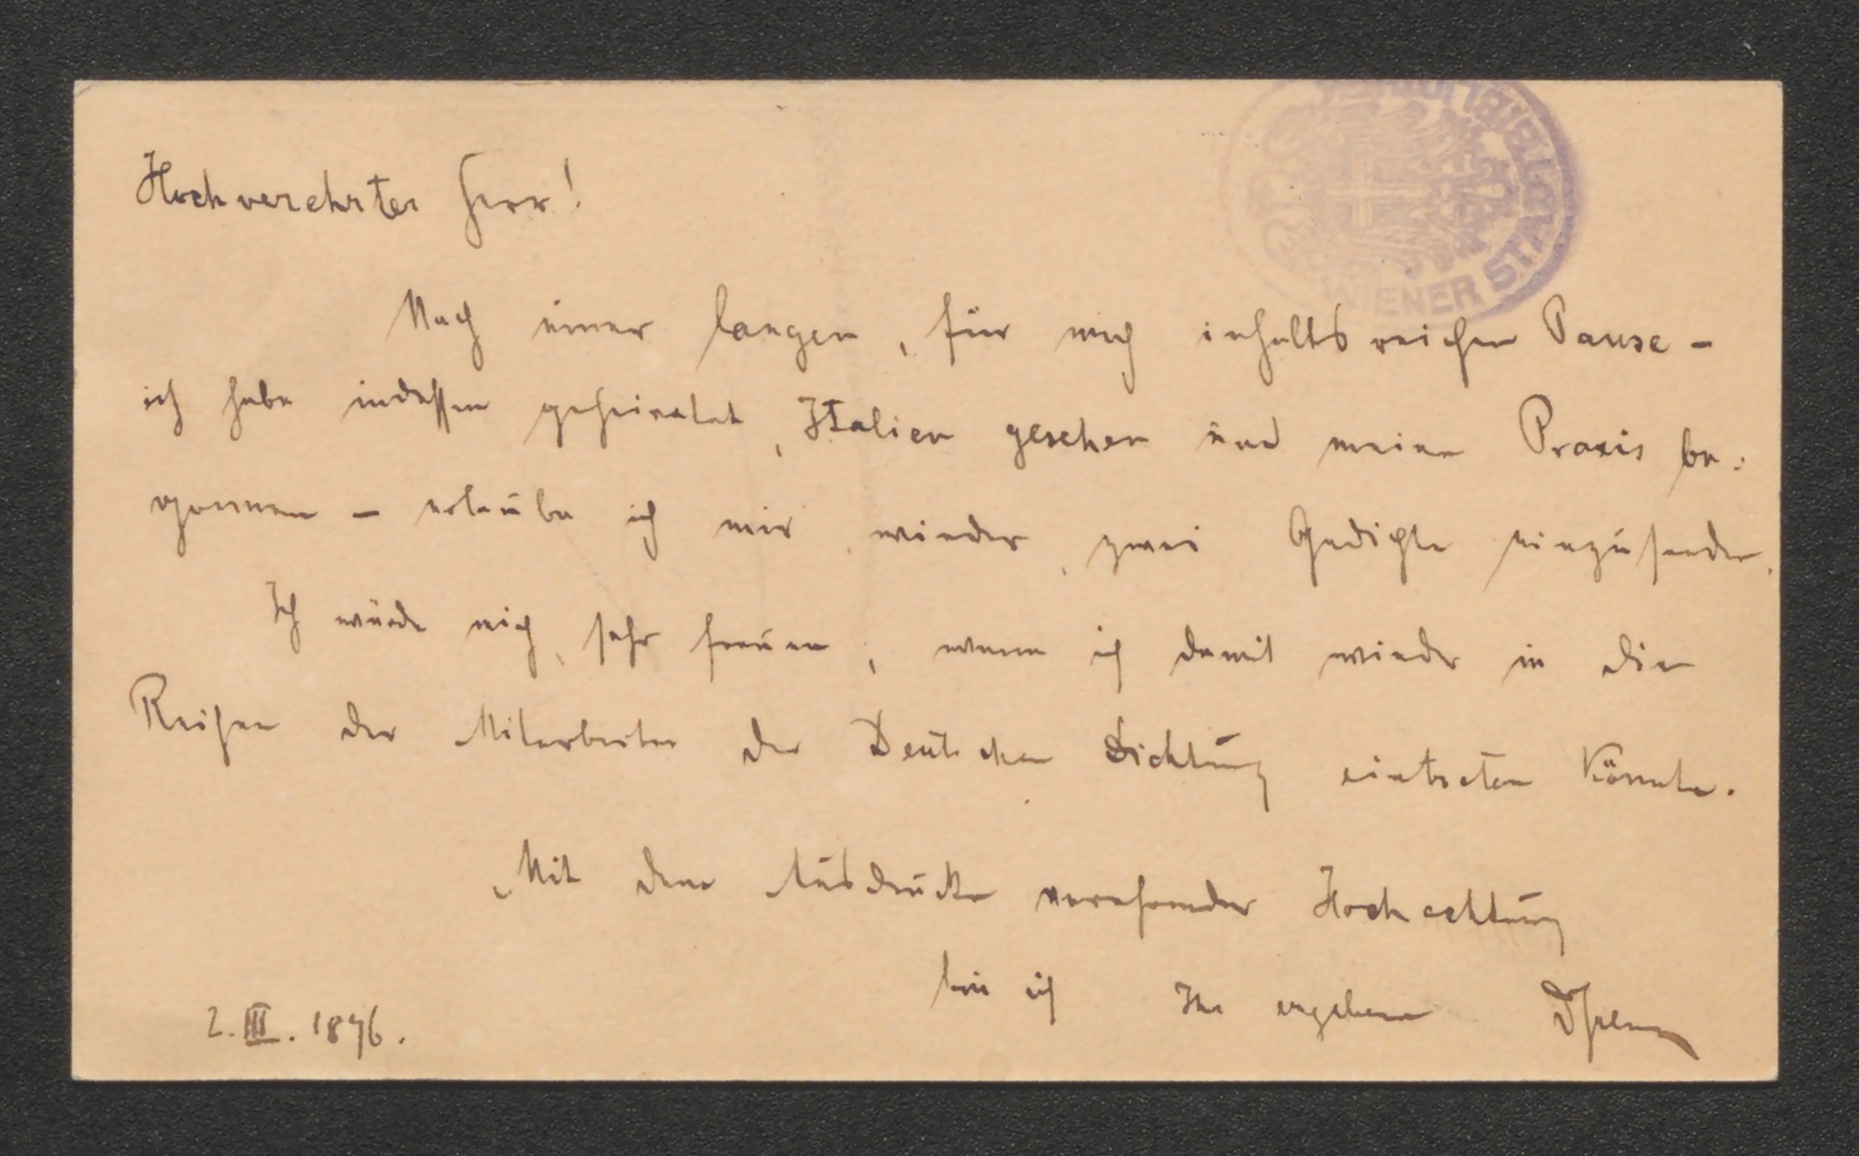 Hochverehrter Herr!
WIENER STADTBIBLIOTHEK
Nach einer langen, für mich inhaltsreichen Pause –
ich habe indessen geheiratet, Italien gesehen und meine Praxis be:
gonnen – erlaube ich mir wieder zwei Gedichte einzusenden.
Ich würde mich sehr freuen, wenn ich damit wieder in die
Reihen der Mitarbeiter der Deutschen Dichtung eintreten könnte.
Mit dem Ausdrucke verehrender Hochachtung
bin ich Ihr ergebener
2. III. 1896.